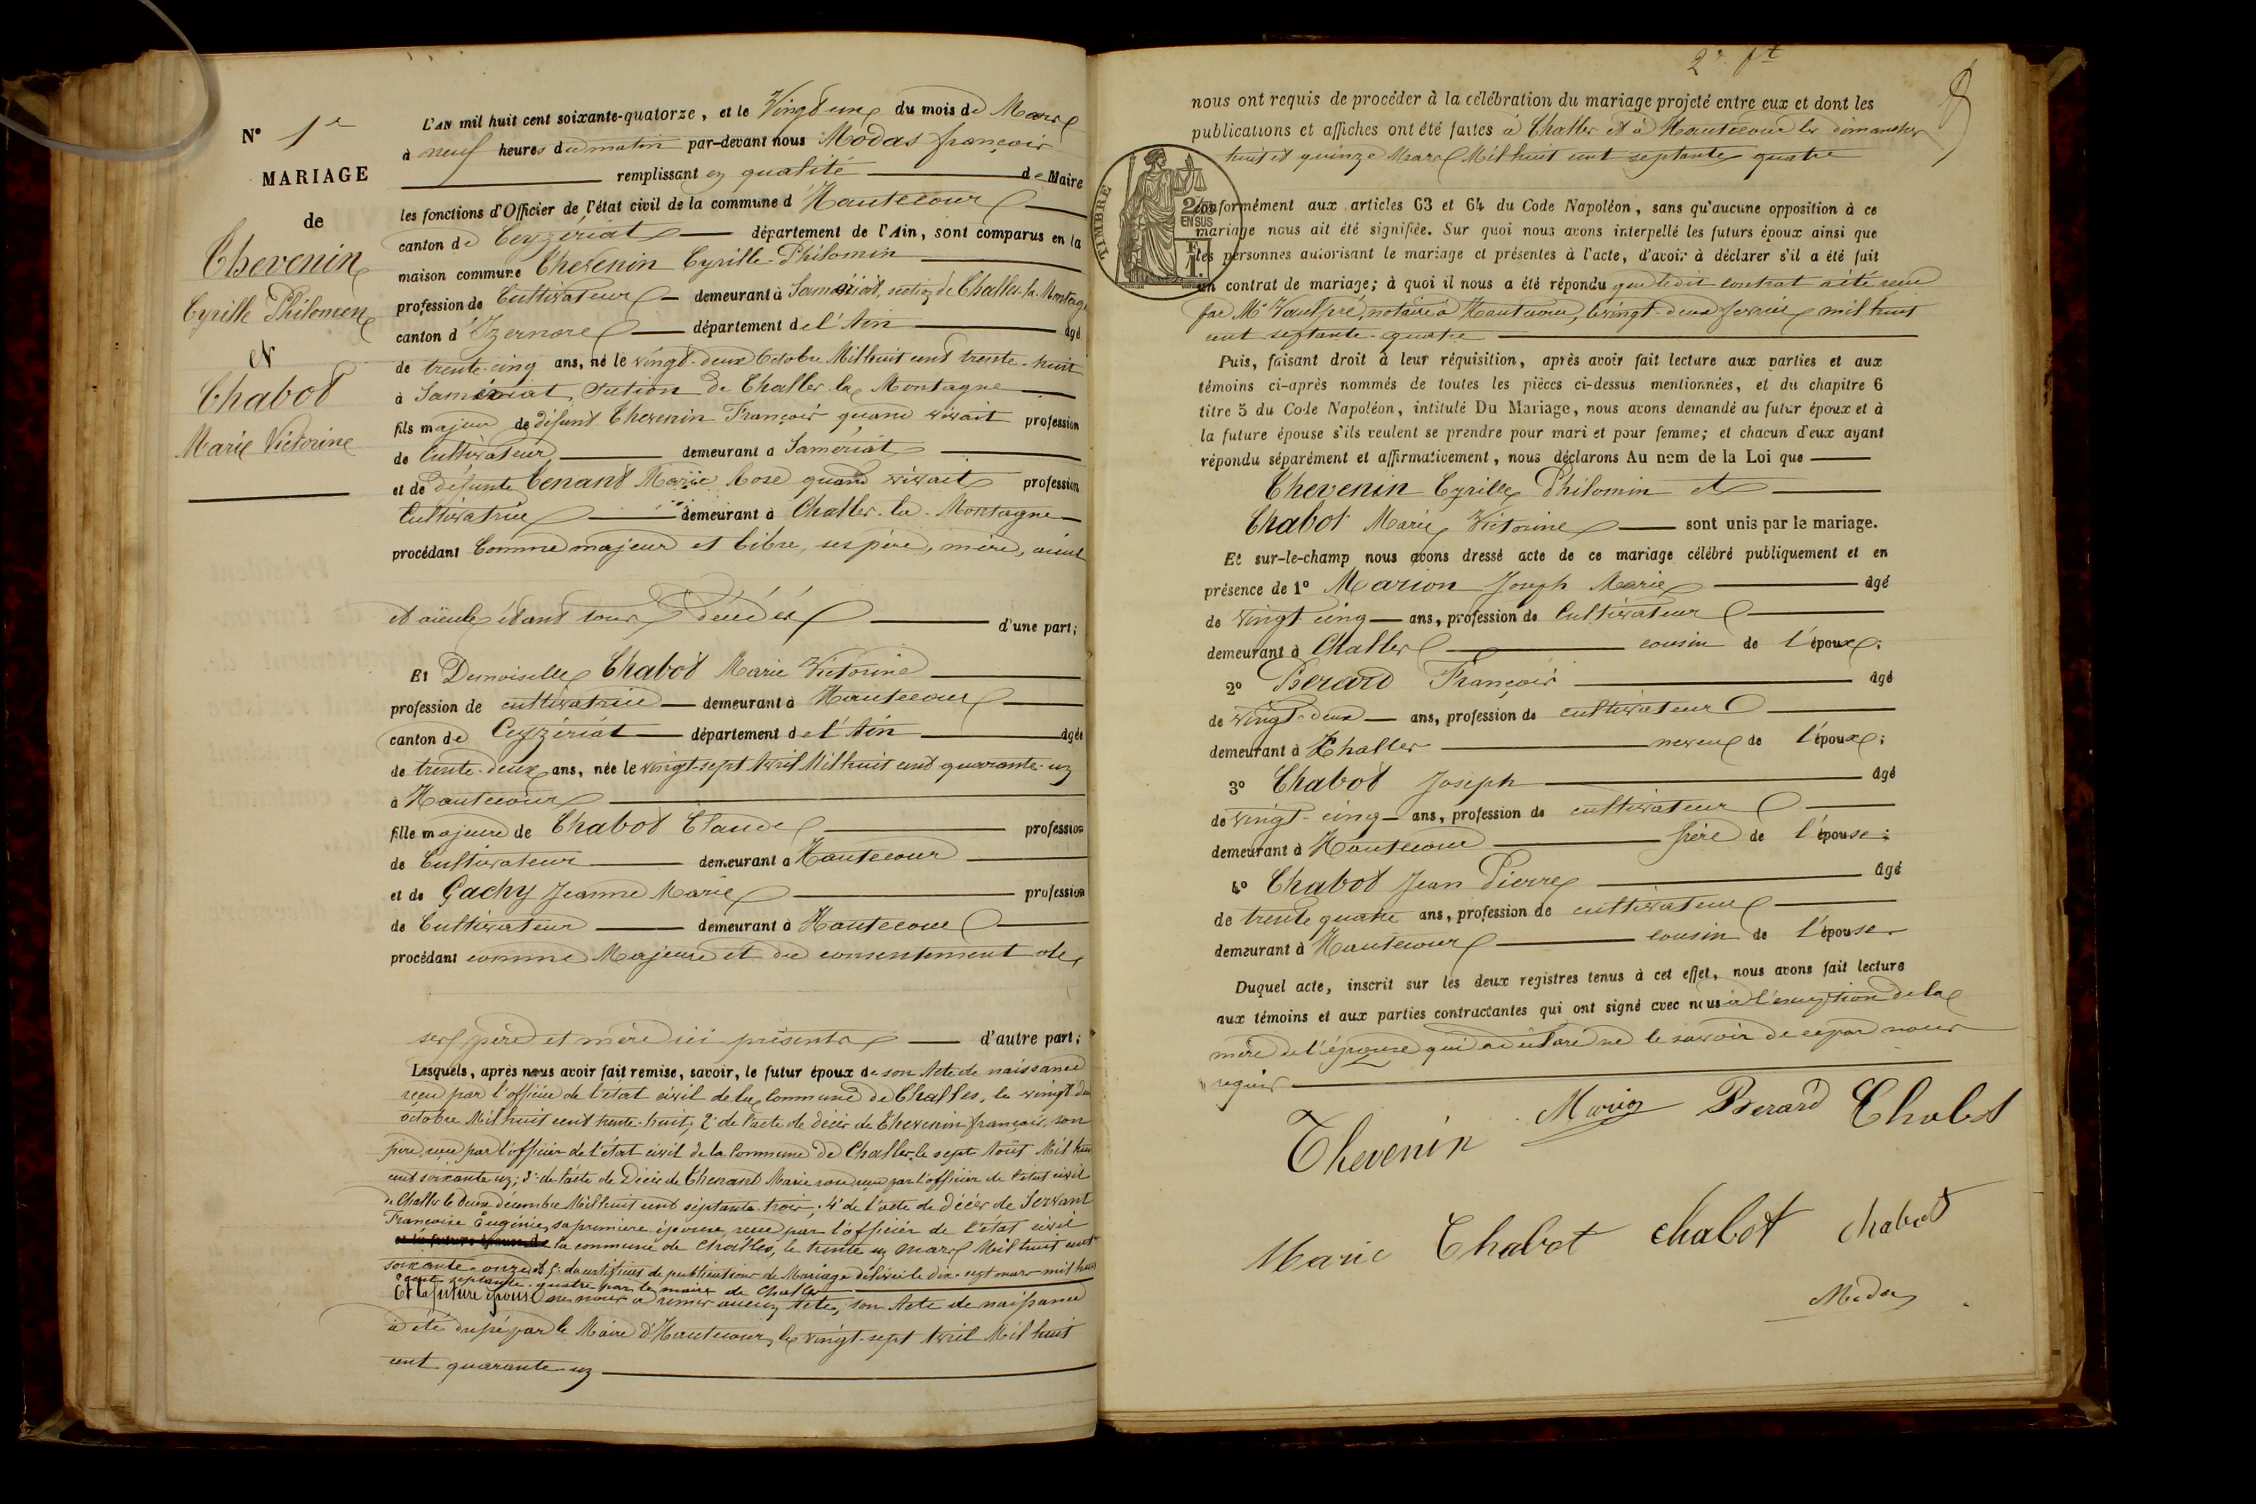 N° 1er
MARIAGE
de
Thevenin
Cyrille Philomen
Et
Chabot
Marie Victorine
L'AN mil huit cent soixante-quatorze, et le Vingt un du mois de Mars
à neuf heures du matin par-devant nous Modas françois
remplissant en qualité de Maire
les fonctions d'Officier de l'état civil de la commune d'Hautecour
canton de Ceyzériat département de l'Ain, sont comparus en la
maison commune Thevenin Cyrille Philomin
profession de Cultivateur demeurant à Samériat, section de Challes la Montagne
canton d'Izernore département de l'Ain âgé
de trente-cinq ans, né le vingt-deux Octobre Mil huit cent trente-huit
à Samériat, Section de Challes la Montagne
fils majeur de défunt Thevenin François quand vivait profession
de Cultivateur demeurant à Samériat
et de défunte Tenant Marie Rose quand vivait profession
Cultivatrice demeurant à Challes-la-Montagne
procédant Comme majeur et libre, ses père, mère, aïeul
et aïeule étant tous décédés d'une part;
Et Demoiselle Chabot Marie Victorine
profession de cultivatrice demeurant à Hautecour
canton de Ceyzériat département de l'Ain âgée
de trente-deux ans, née le vingt-sept Avril Mil huit cent quarante-un
à Hautecour
fille majeure de Chabot Claude profession
de Cultivateur demeurant à Hautecour
et de Gachy Jeanne Marie profession
de Cultivateur demeurant à Hautecour
procédant comme Majeure et du consentement de
ses père et mère ici présents d'autre part;
Lesquels, après nous avoir fait remise, savoir, le futur époux de son Acte de naissance
reçu par l'officier de l'état civil de la Commune de Challes, le vingt-deux
octobre Mil huit cent trente-huit; 2° de l'acte de décès de Thevenin françois, son
père, reçu par l'officier de l'état civil de la Commune de Challes, le sept Août Mil huit
cent soixante un; 3° de l'acte de Décès de Thenant Marie rose reçu par l'officier de l'état civil
de Challes le deux décembre Mil huit cent septante trois; 4° de l'acte de décès de Servant
Françoise Eugénie, sa première épouse, reçu par l'officier de l'état civil
de la commune de Challes, le trente un mars Mil huit cent
soixante-onze et 5° du certificat de publications de Mariage délivré le dix-sept mars mil huit
cent septante-quatre par le maire de Challes
Et la future épouse ne nous a remis aucun acte, son Acte de naissance
a été dressé par le Maire d'Hautecour, le vingt-sept Avril Mil huit
cent quarante un
nous ont requis de procéder à la célébration du mariage projeté entre eux et dont les
publications et affiches ont été faites à Challes et à Hautecour les dimanches
huit et quinze Mars Mil huit cent septante quatre
TIMBRE
2/10 EN SUS
conformément aux articles 63 et 64 du Code Napoléon, sans qu'aucune opposition à ce
mariage nous ait été signifiée. Sur quoi nous avons interpellé les futurs époux ainsi que
les personnes autorisant le mariage et présentes à l'acte, d'avoir à déclarer s'il a été fait
un contrat de mariage; à quoi il nous a été répondu que le dit contrat a été reçu
par Me Vaulpré, notaire à Hautecour, le vingt-deux février mil huit
cent septante-quatre
Puis, faisant droit à leur réquisition, après avoir fait lecture aux parties et aux
témoins ci-après nommés de toutes les pièces ci-dessus mentionnées, et du chapitre 6
titre 5 du Code Napoléon, intitulé Du Mariage, nous avons demandé au futur époux et à
la future épouse s'ils veulent se prendre pour mari et pour femme; et chacun d'eux ayant
répondu séparément et affirmativement, nous déclarons Au nom de la Loi que
Thevenin Cyrille Philomin et
Chabot Marie Victorine sont unis par le mariage.
Et sur-le-champ nous avons dressé acte de ce mariage célébré publiquement et en
présence de 1° Marion Joseph Marie âgé
de vingt cinq ans, profession de Cultivateur
demeurant à Challes cousin de l'époux;
2° Berard François âgé
de vingt-deux ans, profession de cultivateur
demeurant à Challes neveu de l'époux;
3° Chabot Joseph âgé
de vingt-cinq ans, profession de cultivateur
demeurant à Hautecour frère de l'épouse;
4° Chabot Jean Pierre âgé
de trente quatre ans, profession de cultivateur
demeurant à Hautecour cousin de l'épouse
Duquel acte, inscrit sur les deux registres tenus à cet effet, nous avons fait lecture
aux témoins et aux parties contractantes qui ont signé avec nous à l'exception de la
mère de l'épouse qui a déclaré ne le savoir de ce par nous
requis
Thevenin Marion Berard Chabot
Marie Chabot chabot chabot
Modas